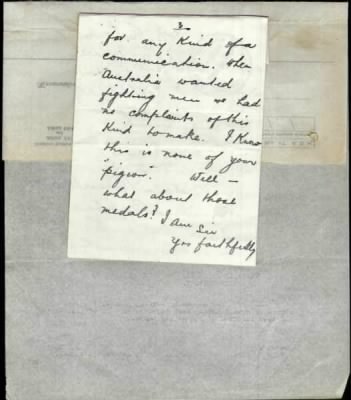 3
for any kind of a
communication. When
Australia wanted
fighting men we had
no complaints of this
kind to make. I know
this is none of your
"pigeon". Well –
what about those
medals? I am Sir
Yrs faithfully